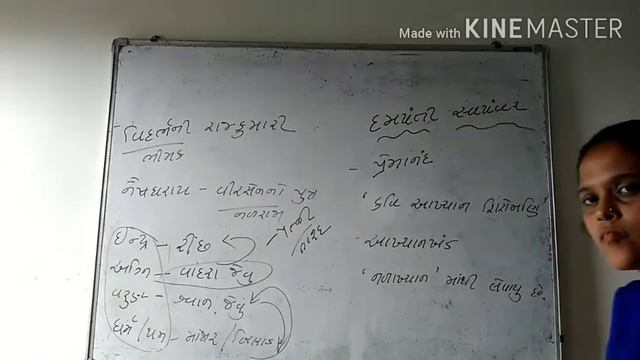 Made with KINEMASTER
દમયંતી સ્વયંવર
- પ્રેમાનંદ
'કવિ આખ્યાન શિરોમણિ'
- આખ્યાનખંડ
'નળાખ્યાન' માંથી લેવાયુ છે.
વિદર્ભની રાજકુમારી
ભીમક
નૈષધરાય - વીરસેનનો પુત્ર
નળરાજા
ઈન્દ્ર - રીંછ
નારદ
અગ્નિ - વાંદરા જેવુ
વરુણ - શ્વાન જેવુ
ધર્મ/યમ - માંજર/બિલાડ